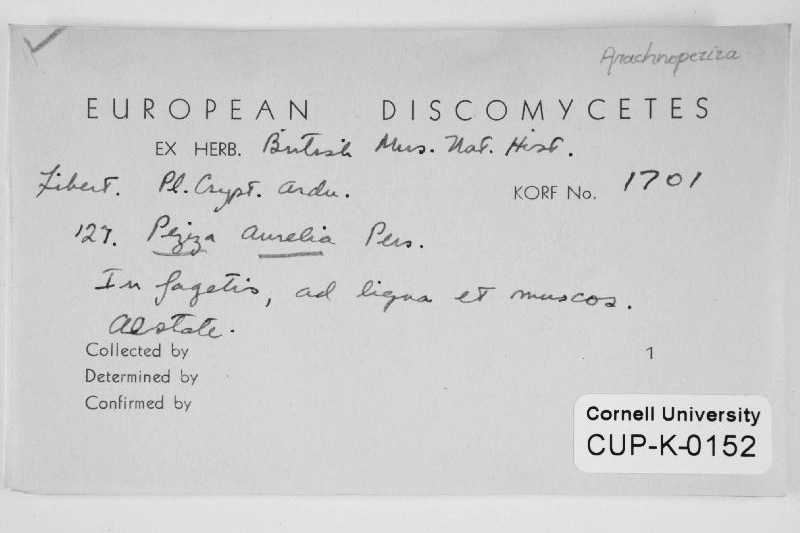 Arachnopeziza
EUROPEAN DISCOMYCETES
EX HERB. British Mus. Nat. Hist.
Libert. Pl. Crypt. Ardu. KORF No. 1701
127. Peziza Aurelia Pers.
In fagetis, ad ligna et muscos.
Aestate.
Collected by 1
Determined by
Confirmed by
Cornell University
CUP-K-0152